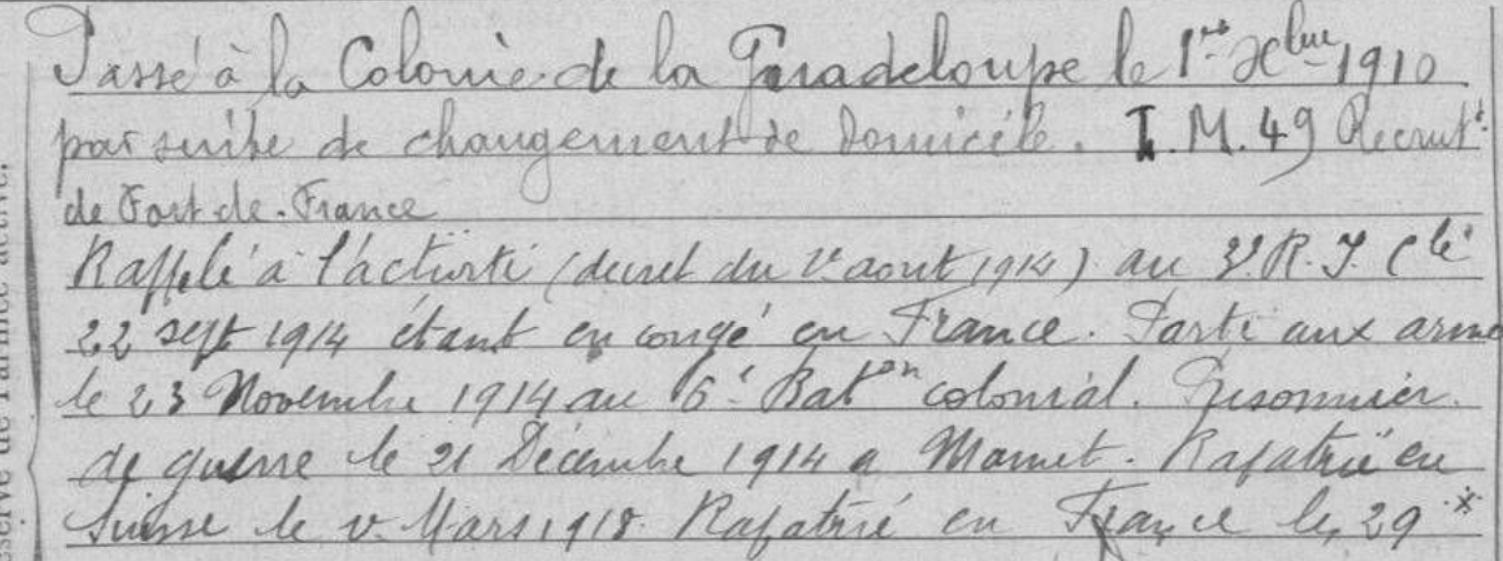 Passé à la Colonie de la Guadeloupe le 1er Xbre 1910
par suite de changement de domicile. I.M. 49 Recrutt
de Fort-de-France
Rappelé à l'activité (decret du 1er aout 1914) au R.I. Cle
22 sept 1914 étant en congé en France. Parti aux arme
le 23 Novembre 1914 au 6e Baton colonial. Prisonnier
de guerre le 21 Décembre 1914 a Mamet. Rapatrié en
Suisse le Mars 1918 Rapatrié en France le 29 *
réserve de l'armée active.